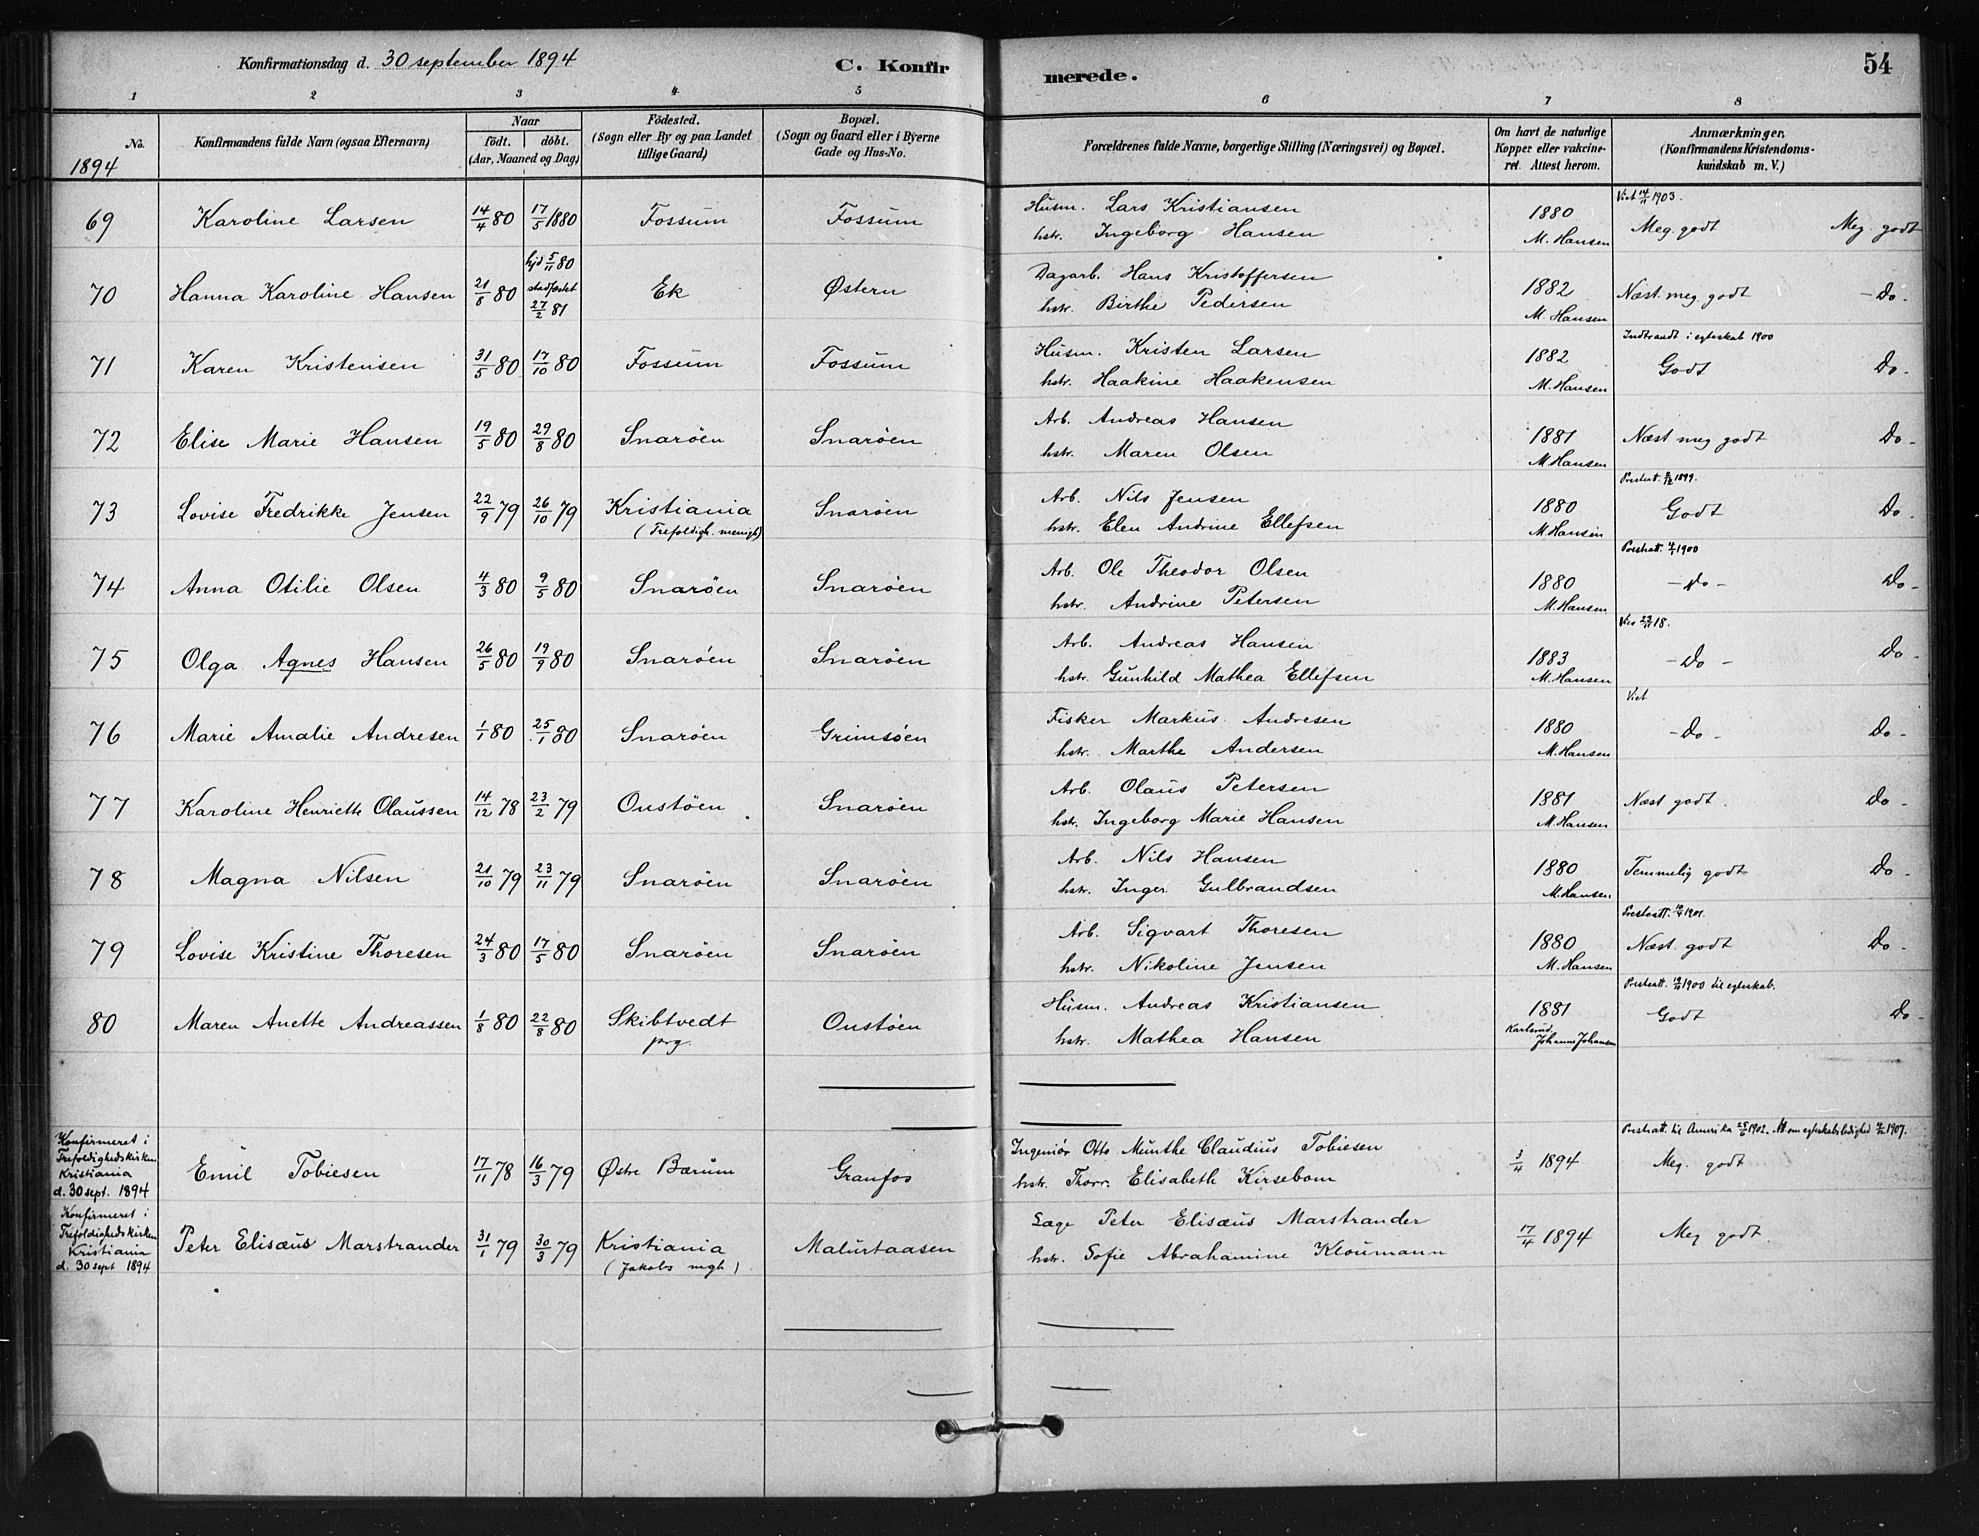 Konfirmationsdag d. 30 september 1894
C. Konfirmerede.
54
1 2 3 4 5 6 7 8
No.
1894
Konfirmandens fulde Navn (ogsaa Efternavn)
Naar
födt. döbt.
(Aar, Maaned og Dag)
Födested.
(Sogn eller By og paa Landet
tillige Gaard)
Bopæl.
(Sogn og Gaard eller i Byerne
Gade og Hus-No.
Forældrenes fulde Navne, borgerlige Stilling (Næringsvei) og Bopæl.
Om havt de naturlige
Kopper eller vakcine-
ret. Attest herom.
Anmærkninger.
(Konfirmandens Kristendoms-
kundskab m. V.)
69 Karoline Larsen 14/4 80 17/5 1880 Fossum Fossum Husm. Lars Kristiansen
hstr. Ingeborg Hansen 1880
M. Hansen Viet 14/11 1903.
Meg. godt Meg. godt
70 Hanna Karoline Hansen 21/8 80 hjd 5/11 80
stadfæstet
27/2 81 Ek Østern Dagarb. Hans Kristoffersen
hstr. Birthe Pedersen 1882
M. Hansen Næst. meg. godt - Do -
71 Karen Kristensen 31/5 80 17/10 80 Fossum Fossum Husm. Kristen Larsen
hstr. Haakine Haakensen 1882
M. Hansen Indtraadt i egteskab 1900
Godt Do -
72 Elise Marie Hansen 19/5 80 29/8 80 Snarøen Snarøen Arb. Andreas Hansen
hstr. Maren Olsen 1881
M. Hansen Næst meg godt Do -
73 Lovise Fredrikke Jensen 22/9 79 26/10 79 Kristiania
(Trefoldigh. menigh) Snarøen Arb. Nils Jensen
hstr. Elen Andrine Ellefsen 1880
M. Hansen Prestatt. 1899.
Godt Do
74 Anna Otilie Olsen 4/3 80 9/5 80 Snarøen Snarøen Arb. Ole Theodor Olsen
hstr. Andrine Petersen 1880
M. Hansen Prestatt. 1900
- Do - Do -
75 Olga Agnes Hansen 26/5 80 19/9 80 Snarøen Snarøen Arb. Andreas Hansen
hstr. Gunhild Mathea Ellefsen 1883
M. Hansen 18.
- Do - Do -
76 Marie Amalie Andresen 1/1 80 25/1 80 Snarøen Grimsøen Fisker Markus Andresen
hstr. Marthe Andersen 1880
M. Hansen Viet
- Do - Do -
77 Karoline Henriette Olaussen 14/12 78 23/2 79 Oustøen Snarøen Arb. Olaus Petersen
hstr. Ingeborg Marie Hansen 1881
M. Hansen Næst godt. Do -
78 Magna Nilsen 21/10 79 23/11 79 Snarøen Snarøen Arb. Nils Hansen
hstr. Inger Gulbrandsen 1880
M. Hansen Temmelig godt Do -
79 Lovise Kristine Thoresen 24/3 80 17/5 80 Snarøen Snarøen Arb. Sigvart Thoresen
hstr. Nikoline Jensen 1880
M. Hansen Prestatt. 1901.
Næst. godt Do -
80 Maren Anette Andreassen 1/8 80 22/8 80 Skibtvedt
prg. Oustøen Husm. Andreas Kristiansen
hstr. Mathea Hansen 1881
Karlsrud.
Johannes Johansen Prestatt. 1900 til egteskab.
Godt Do -
Konfirmeret i
Trefoldighedskirken
Kristiania
d. 30 sept. 1894 Emil Tobiesen 17/11 78 16/3 79 Østre Bærum Granfos Ingeniør Otto Munthe Claudius Tobiesen
hstr. Thorr. Elisabeth Kirsebom 3/4 1894 Prestatt. til Amerika 25/6 1902. Att om egteskabsledighed 1907.
Meg. godt
Konfirmeret i
Trefoldighedskirken
Kristiania
d. 30 sept 1894 Peter Elisæus Marstrander 31/1 79 30/3 79 Kristiania
(Jakobs mgh) Malurtaasen Læge Peter Elisæus Marstrander
hstr. Sofie Abrahamine Kloumann 17/4 1894 Meg godt.